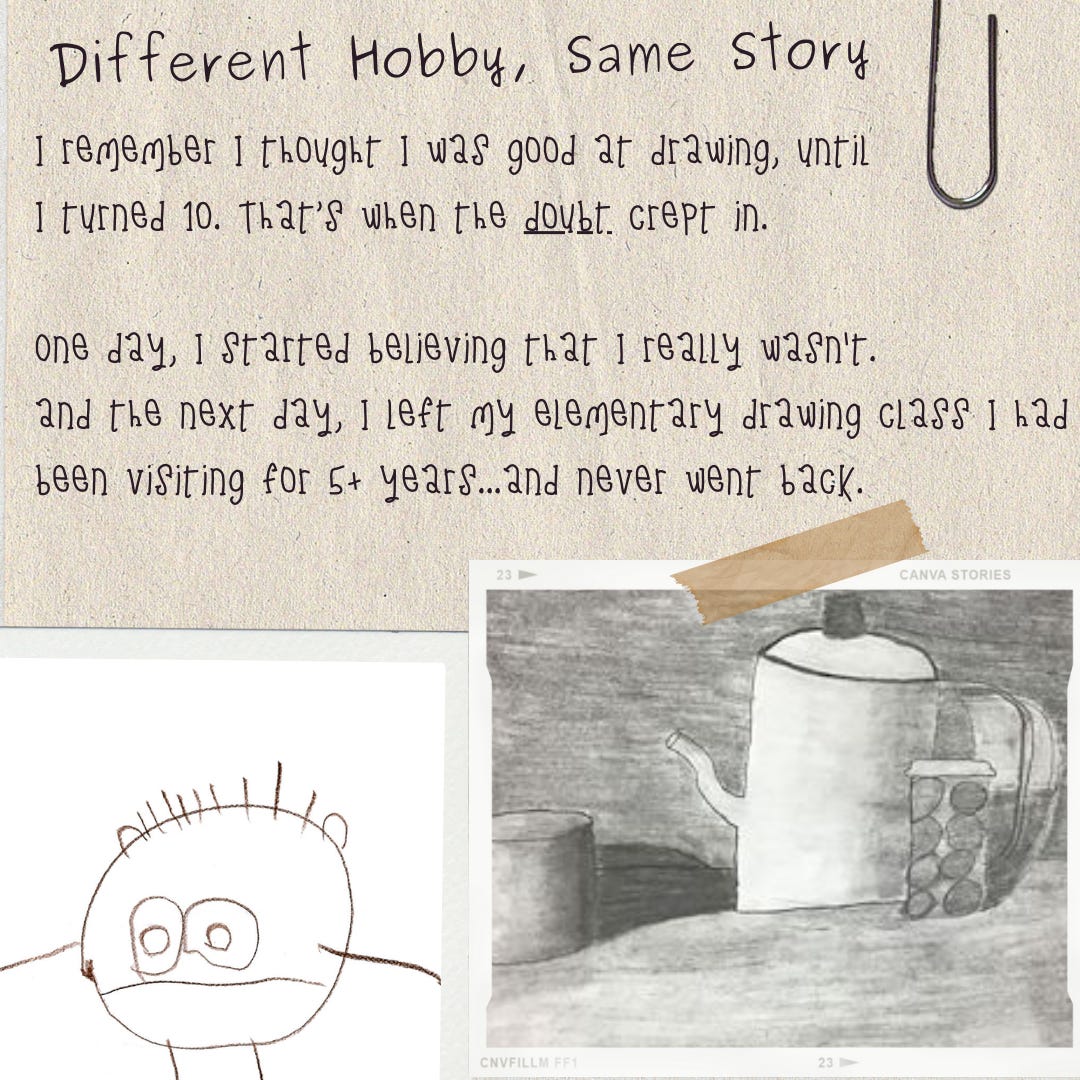 Different Hobby, Same Story
I remember I thought I was good at drawing, until
I turned 10. That's when the doubt crept in.
one day, I started believing that I really wasn't.
and the next day, I left my elementary drawing class I had
been visiting for 5+ years...and never went back.
23
CANVA STORIES
CNVFILLM FF1
23